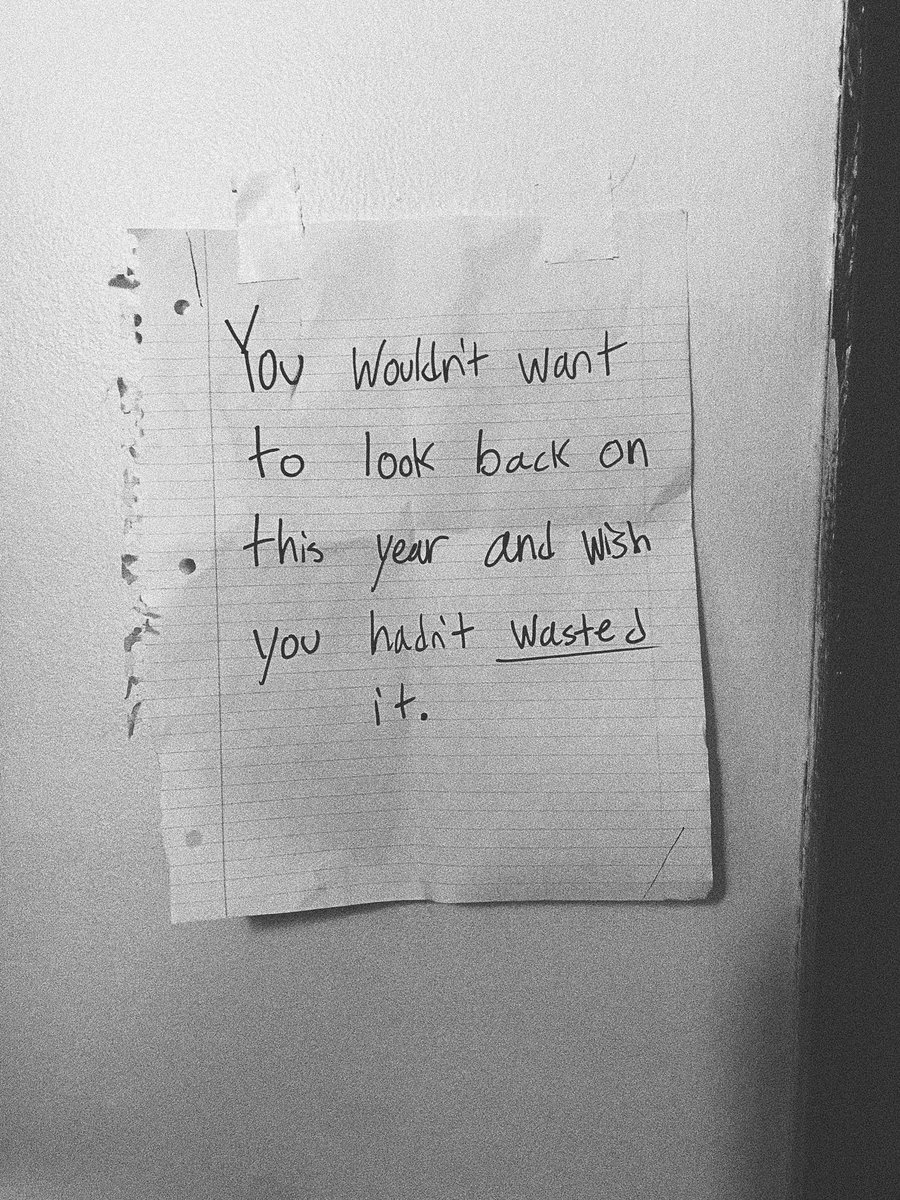 You wouldn't want
to look back on
this year and wish
you hadn't wasted
it.